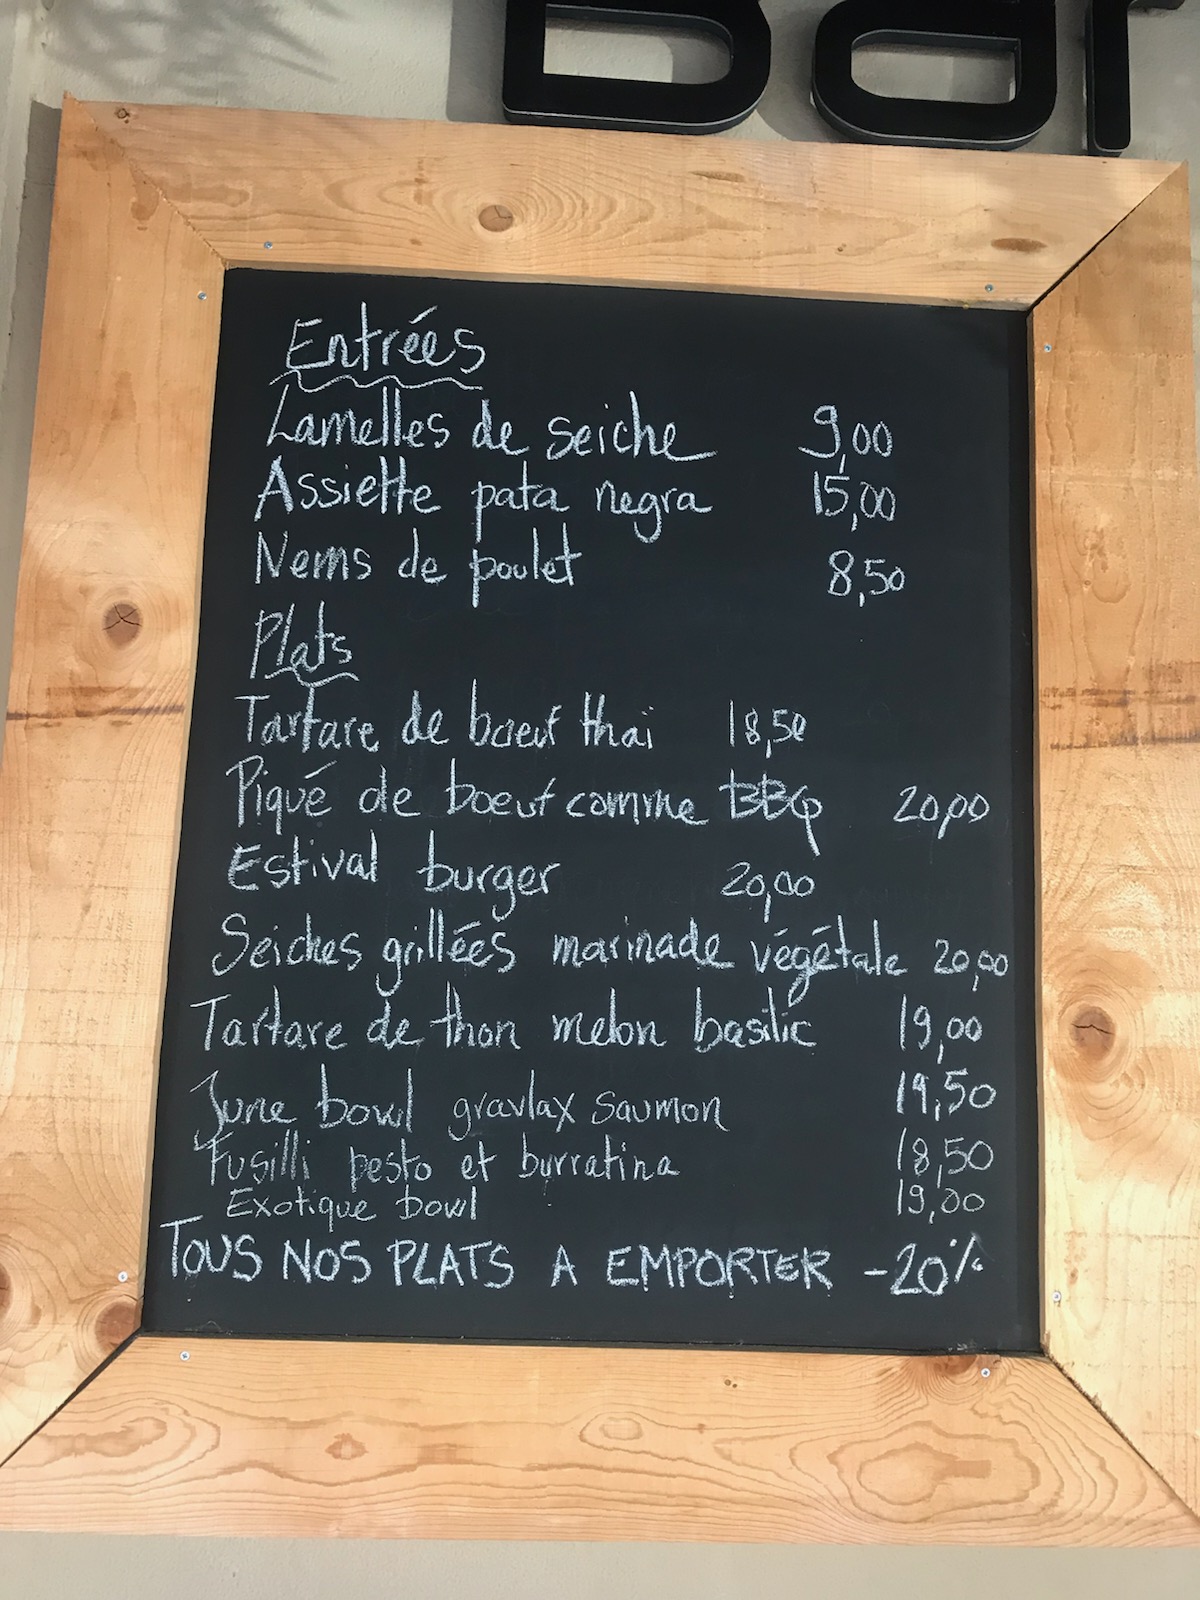 Bar
Entrées
Lamelles de seiche 9,00
Assiette pata negra 15,00
Nems de poulet 8,50
Plats
Tartare de bœuf thaï 18,50
Piqué de boeuf comme BBQ 20,00
Estival burger 20,00
Seiches grillées marinade végétale 20,00
Tartare de thon melon basilic 19,00
June bowl gravlax saumon 19,50
Fusilli pesto et burratina 18,50
Exotique bowl 19,00
TOUS NOS PLATS A EMPORTER -20%